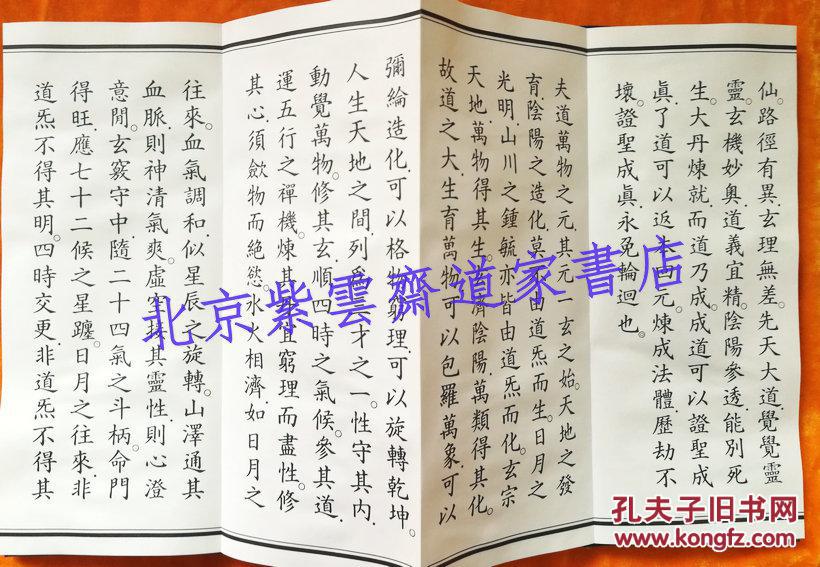 仙。路徑有異。玄理無差。先天大道。覺覺靈
靈。玄機妙奧。道義宜精。陰陽參透。能別死
生。大丹煉就。而道乃成。成道可以證聖成
眞。了道可以返本四元。煉成法體。歷劫不
壞。證聖成眞。永免輪迴也。
夫道萬物之元。其元一玄之始。天地之發
育。陰陽之造化。莫不由道炁而生。日月之
光明。山川之鍾毓。亦皆由道炁而化。玄宗
天地。萬物得其生。玄濟陰陽。萬類得其化。
故道之大。生育萬物。可以包羅萬象。可以
彌綸造化。可以格物窮理。可以旋轉乾坤。
人生天地之間。列為三才之一。性守其內。
動覺萬物。修其玄。順四時之氣候。參其道。
運五行之禪機。煉其 宜窮理而盡性。修
其心。須歛物而絶慾。水火相濟。如日月之
往來。血氣調和。似星辰之旋轉。山澤通其
血脈。則神清氣爽。虛空接其靈性。則心澄
意閒。玄竅守中。隨二十四氣之斗柄。命門
得旺。應七十二候之星躔。日月之往來。非
道炁不得其明。四時交更。非道炁不得其
北京紫雲齋道家書店
孔夫子旧书网
www.kongfz.com